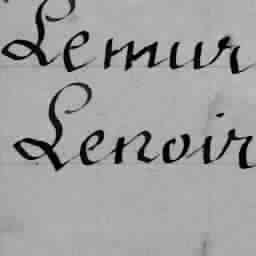 Lemur
Lenoir